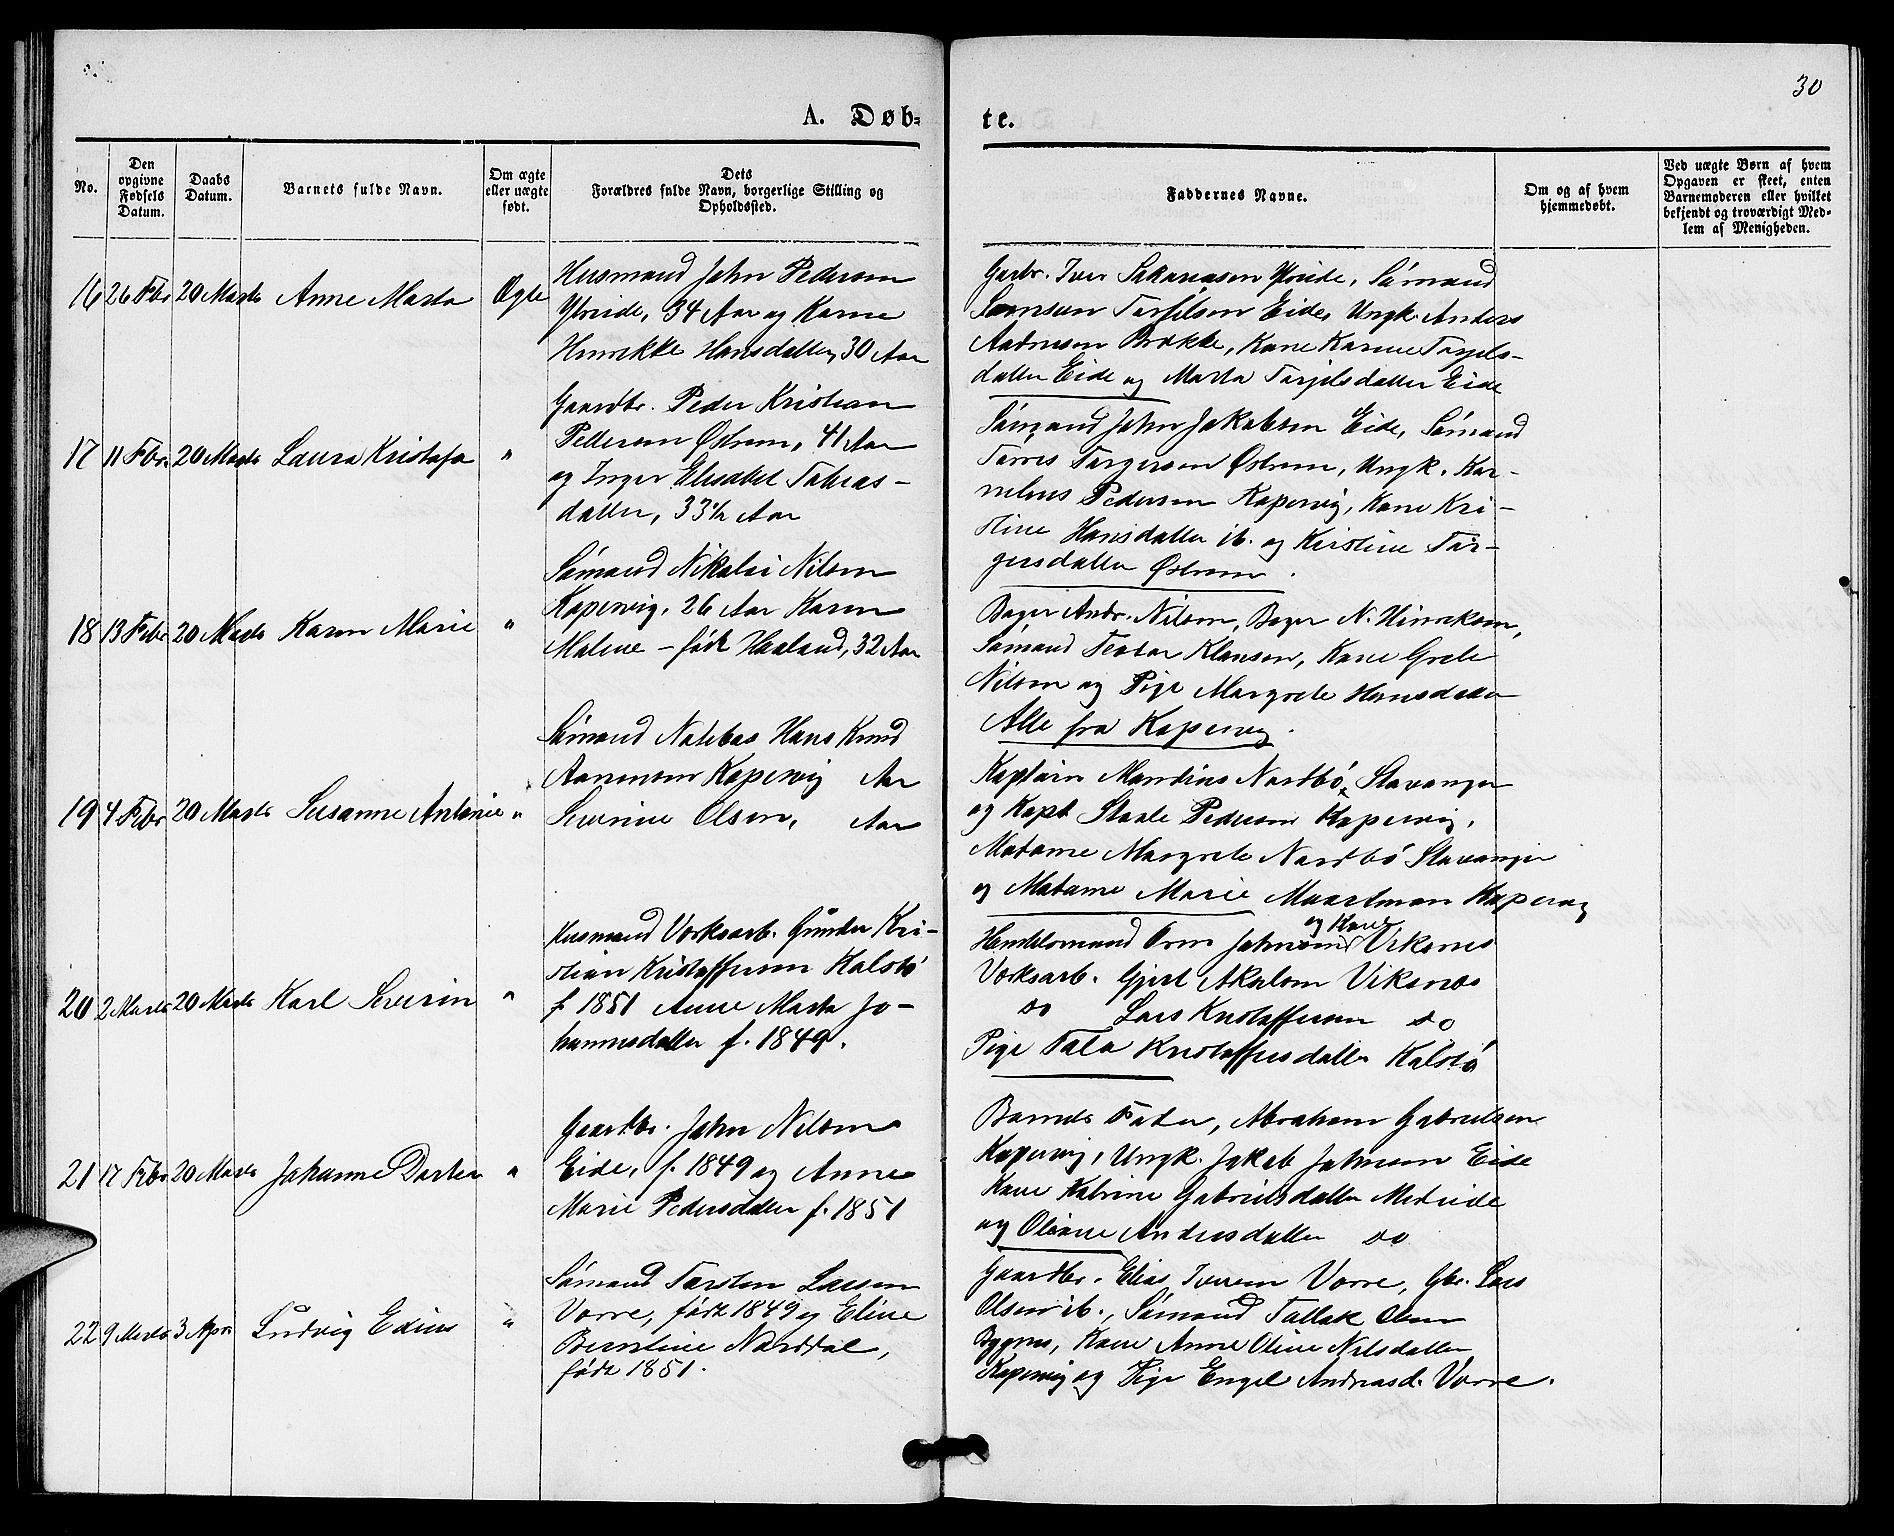 30
A. Døb-
te.
No.
Den
opgivne
Fødsels
Datum.
Daabs
Datum.
Barnets fulde Navn.
Om ægte
eller uægte
født.
Dets
Forældres fulde Navn, borgerlige Stilling og
Opholdssted.
Faddernes Navne.
Om og af hvem
hjemmedøbt.
Ved uægte Børn af hvem
Opgaven er skeet, enten
Barnemoderen eller hvilket
bekjendt og troværdigt Med-
lem af Menigheden.
16 26 Fbr 20 Marts Anne Marta Ægte
Husmand John Pederson
34 Aar og Kone
Henrikke Hansdatter, 30 Aar
Garbr. Iver Sakariasen Sømand
Samson Eide, Ungk. Anders
Andreasen Brække, Kone Karine Torjils-
datter Eide og Marta Torjilsdatter Eide
17 11 Fbr. 20 Marts Laura Kristofa "
Gaardbr. Peder Kristian
Pederson Østrem, 41 Aar
og Inger Elisabet Tobias-
datter, 33½ Aar
Sømand John Jakobson Eide, Sømand
Torres Torgerson Østrem, Ungk. Kor-
nelius Pederson Kopervig, Kone Kri-
stine Hansdatter ib. og Kirstine Tor-
gersdatter Østrem.
18 13 Febr 20 Marts Karen Marie "
Sømand Nikolai Nilson
Kopervig, 26 Aar Karen
Malene - født Haaland, 32 Aar
Bager Andr. Nilson, Bager N. Hinrekson,
Sømand Teodor Klausen, Kone Grete
Nilson og Pige Margrete Hansdatter
Alle fra Kopervig.
19 4 Febr 20 Marts Susanne Antonie "
Sømand Hans Knud
Kopervig Aar
Severine Olsen, Aar
Kaptein Mandius Nordbø, Stavanger
og Kapt Staale Pederson Kopervig,
Madame Margrete Nordbø Stavanger
og Madame Marie Maartman Kopervig
20 2 Marts 20 Marts Karl Severin "
Husmand Værksarb. Gunder Kri-
stian Kristofferson Kalstø
f 1851 Anne Marta Jo-
hannesdatter f. 1849.
og Kone
Handelsmand Orm Johnson Vikenes
Værksarb. Gjert Akselson Viknæs
do Lars Kristofferson do
Pige Tala Kristoffersdatter Kalstø
21 17 Febr 20 Marts Johanne Dortea "
Gaardbr. John Nilson
Eide, f. 1849 og Anne
Marie Pedersdatter f. 1851
Barnets Fader, Abraham Gabrielsen
Kopervig, Ungk. Jakob Johnson Eide
Kone Katrine Gabrielsdatter Medeide
og Oliane Andersdatter do
22 9 Marts 3 April Ludvig Edius "
Sømand Torsten Larsen
Vorre, født 1849 og Eline
Berntine Norddal,
født 1851.
Gaardbr. Elias Iverson Vorre, Gbr. Lars
Olson ib., Sømand Tallak Olsen
Bygnes, Kone Anne Oline Nilsdatter
Kopervig og Pige Engel Andreasd. Vorre.